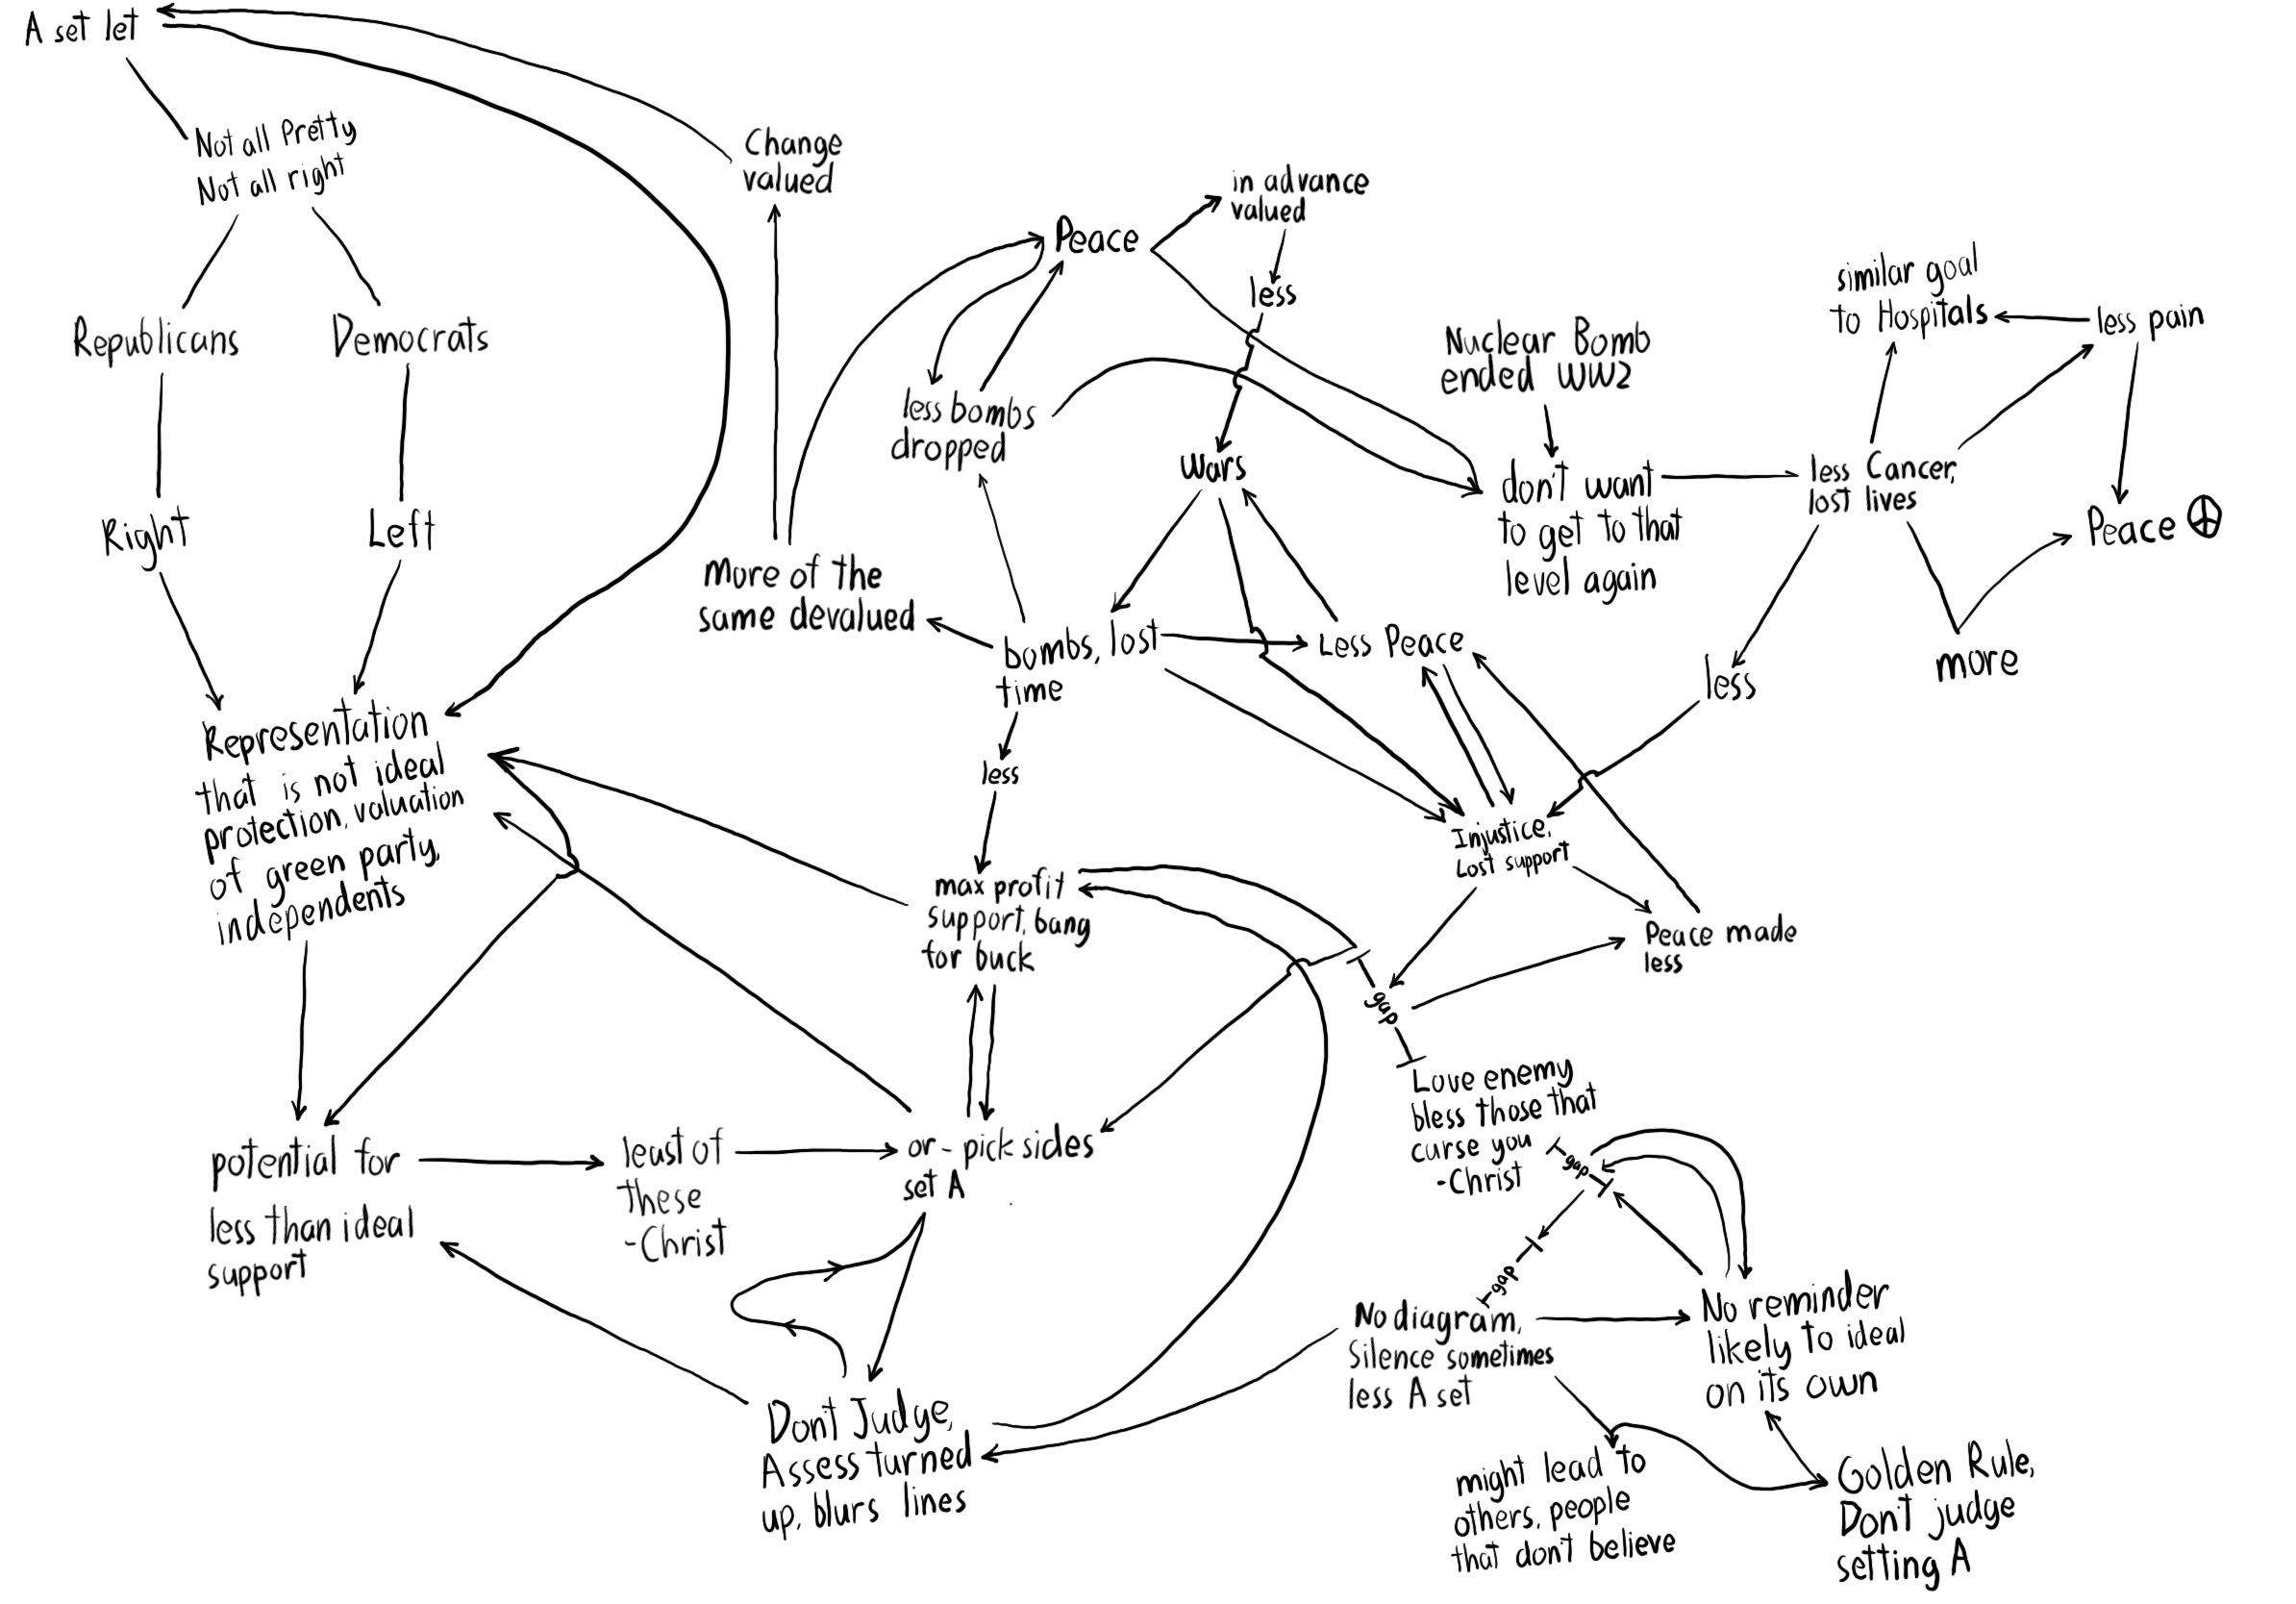 A set let
Not all Pretty
Not all right
Republicans
Democrats
Right
Left
Representation
that is not ideal
protection, valuation
of green party,
independents
potential for
less than ideal
support
least of
these
-Christ
or - pick sides
set A
Don't Judge,
Assess turned
up, blurs lines
Change
valued
More of the
same devalued
Peace
in advance
valued
less
less bombs
dropped
Wars
bombs, lost
time
less
max profit
support, bang
for buck
Less Peace
Nuclear Bomb
ended WW2
don't want
to get to that
level again
less Cancer,
lost lives
similar goal
to Hospitals
less pain
Peace ☮
less
more
Injustice,
Lost support
Peace made
less
gap
Love enemy
bless those that
curse you
-Christ
gap
gap
No diagram,
Silence sometimes
less A set
No reminder
likely to ideal
on its own
might lead to
others, people
that don't believe
Golden Rule,
Don't judge
setting A